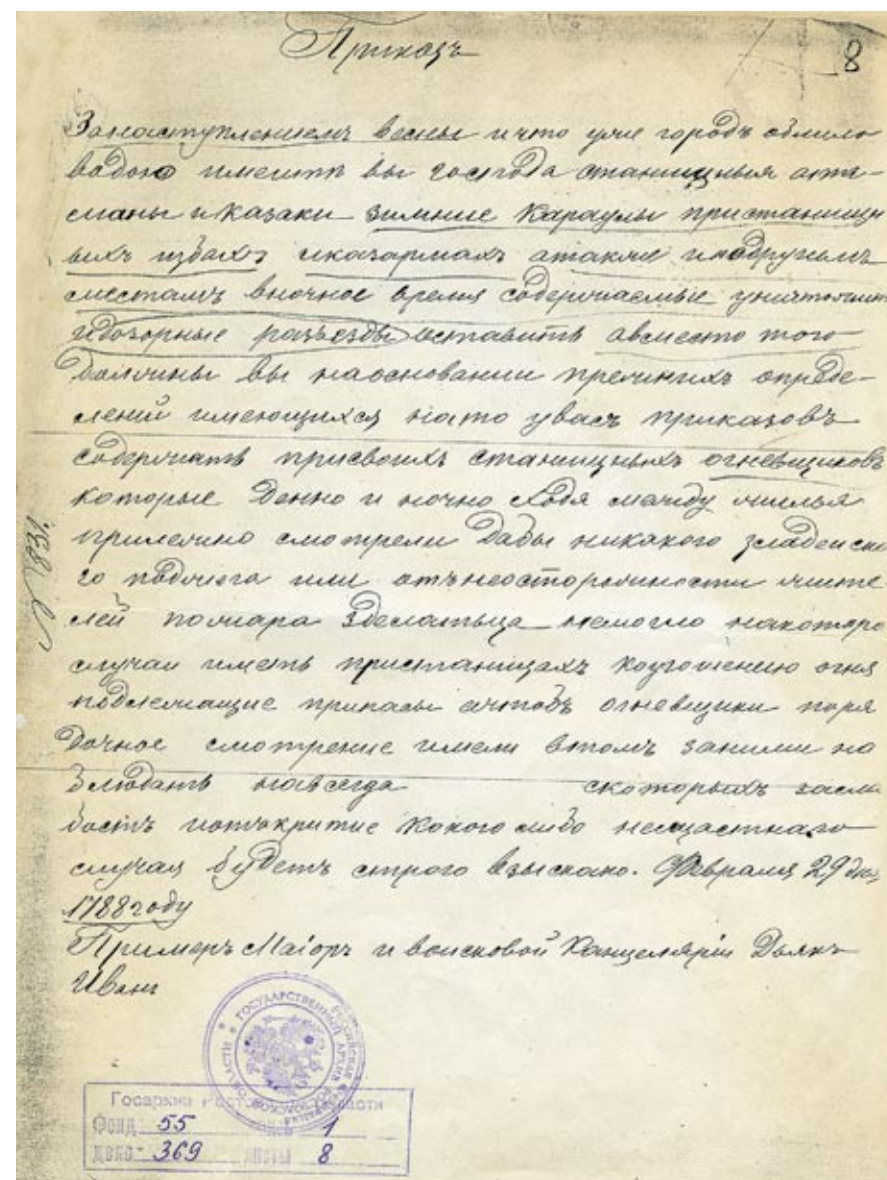 Приказъ
8
Занаступлениемъ весны ичто уже городъ обмило
вадою имеите вы господа станишныя ата-
маны и казаки зимние караулы пристанишн
ыхъ избахъ иказармахъ атакже инадругимъ
местамъ вночное время содержаемые уничтожить
идозорные разъезды оставить авместо того
Должны вы наосновании прежнихъ опреде-
лений имеющихся нато увасъ приказовъ
содержать присвоихъ станишныхъ огневщиковъ
которые Денно и ночно ходя между жилья
прилежно смотрели Дабы никакого зладейска
го поджога или отънеосторожности жите
лей пожара зделатьца немогло накоторо
случаи иметь пристаницахъ коугошению огня
подлежащие припасы ачтобъ огневщики поря
Дочное смотрение имели втомъ заними на
Блюдать навсегда скоторыхъ засла
бость ипотокритие какого либо несщастнаго
случая будетъ строго взыскано. Февраля 29 дня
1788 году
Примеръ Маіоръ и воисковой Канцеляріи Дьякъ
Иванъ
Госархив Ростовской области
Фонд 55 1
дело 369 листы 8